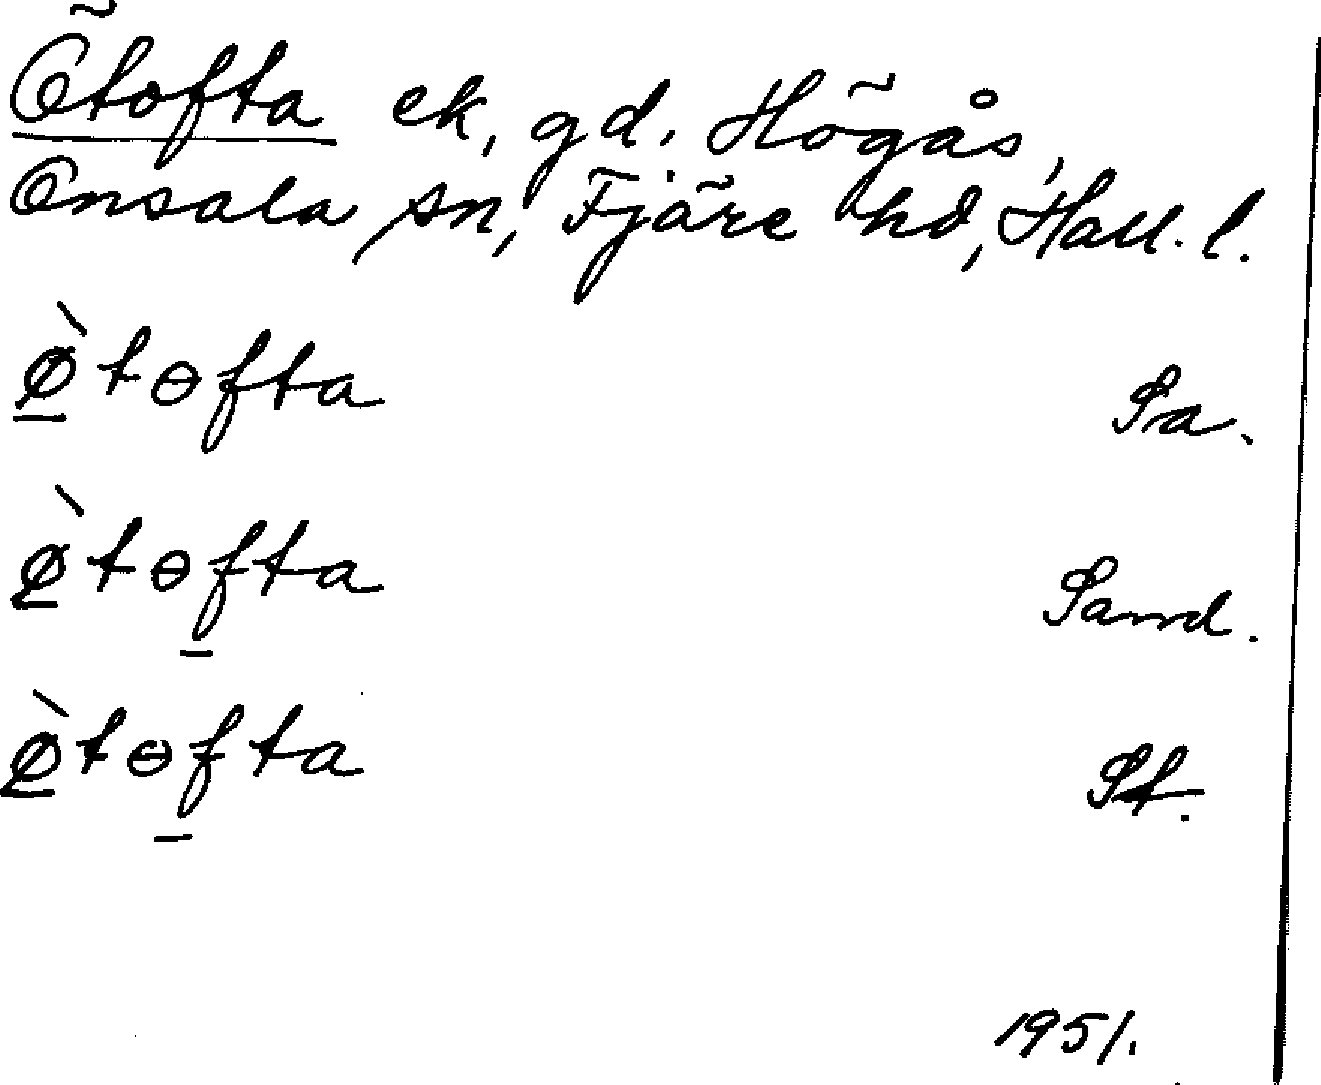 Õtofta ek, gd. Högås,
Onsala sn, Fjäre hd, Hall. l.
ø̠̀tɵfta Sa.
ø̠̀tɵf̠ta Sand.
ø̠̀tɵf̠ta Sf.
1951.